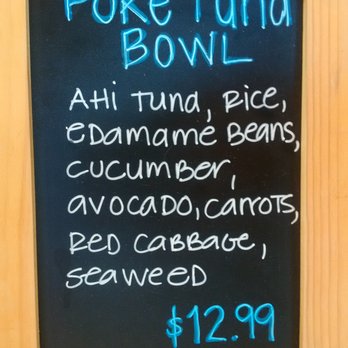 POKE TUNA
BOWL
AHI TUNA, RICE,
EDAMAME BEANS,
CUCUMBER,
AVOCADO, CARROTS,
RED CABBAGE,
SEAWEED
$12.99